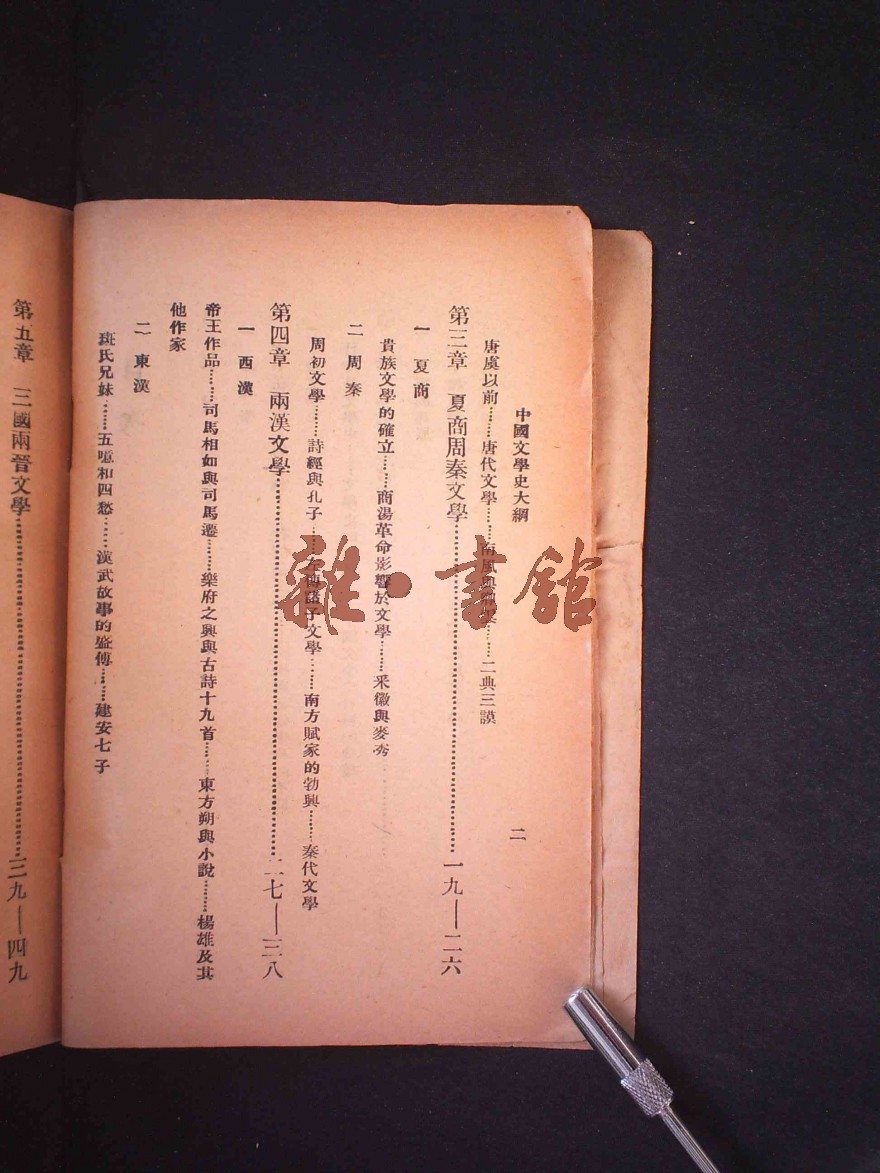 中國文學史大綱
二
唐虞以前……唐代文學……南風與……二典三謨
第三章　夏商周秦文學……一九—二六
一　夏商
貴族文學的確立……商湯革命影響於文學……釆徽與麥秀
二　周秦
周初文學……詩經與孔子……左傳諸子文學……南方賦家的勃興……秦代文學
第四章　兩漢文學……二七—三八
一　西漢
帝王作品……司馬相如與司馬遷……樂府之興與古詩十九首……東方朔與小說……楊雄及其
他作家
二　東漢
班氏兄妹……五噫和四愁……漢武故事的盛傳……建安七子
第五章　三國兩晉文學……三九—四九
雜·書館